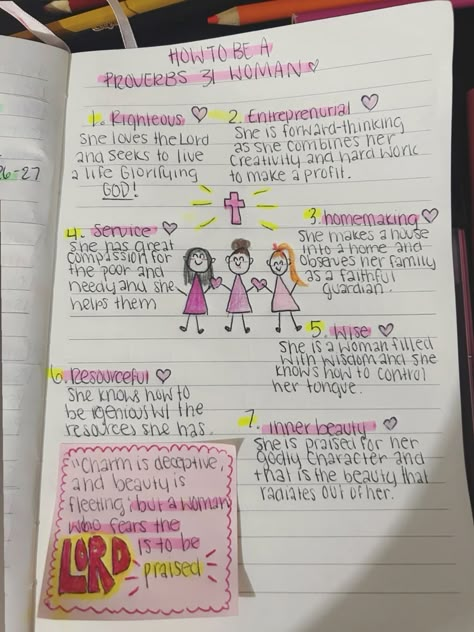 HOW TO BE A
PROVERBS 31 WOMAN
1. Righteous
She loves the Lord
and seeks to live
a life Glorifying
GOD!
2. Entreprenurial
She is forward-thinking
as she combines her
creativity and hard work
to make a profit.
6-27
3. homemaking
She makes a house
into a home and
observes her family
as a faithful
guardian.
4. Service
She has great
compassion for
the poor and
needy and she
helps them
5. Wise
She is a woman filled
with wisdom and she
knows how to control
her tongue.
6. Resourceful
She knows how to
be ingenious w/ the
resources she has.
7. inner beauty
She is praised for her
godly character and
that is the beauty that
radiates out of her.
"Charm is deceptive,
and beauty is
fleeting; but a woman
who fears the
LORD is to be
praised